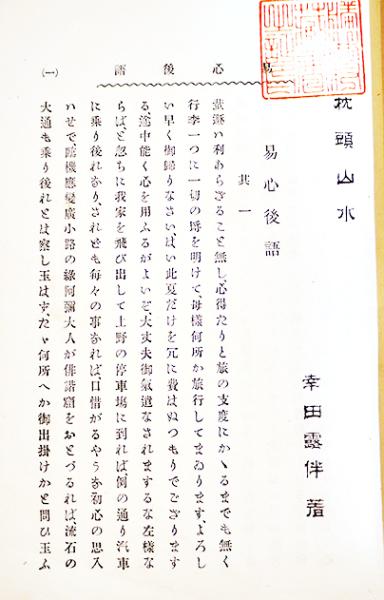 枕頭山水
幸田露伴著
易心後語
其一
肥遯は利あらざること無し、心得たりと旅の支度にかゝるまでも無く
行李一つに一切の埒を明けて、母樣何所か旅行してまゐります、よろし
い早く御歸りなさい、はい此夏だけを冗に費はぬつもりでござります
る、途中能く心を用ふるがよいぞ、大丈夫御氣遣なされまするな左樣な
らばと忽ちに我家を飛び出して上野の停車塲に到れば例の通り汽車
に乘り後れたり、されども每々の事なれば、口惜がるやうな初心の思入
ハせで、臨機應變廣小路の緣阿彌大人が俳諧窟をおとづるれば、流石の
大通も乘り後れとは察し玉はず、たゞ何所へか御出掛けかと問ひ玉ふ
易心後語
(一)